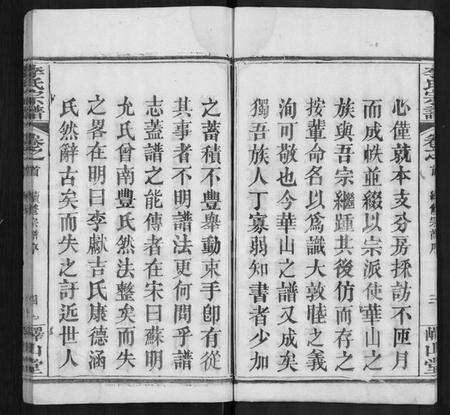 心僅就本支分房採訪不匝月
而成帙並綴以宗派使華山之
族與吾宗繼踵其後仿而存之
按輩命名以為識大敦睦之義
洵可敬也今華山之譜又成矣
獨吾族人丁寡弱知書者少加
之蓄積不豐舉動束手即有從
其事者不明譜法更何關乎譜
志蓋譜之能傳者在宋曰蘇明
允氏曾南豐氏然法整矣而失
之畧在明曰李獻吉氏康德涵
氏然辭古矣而失之訐近世人
李氏宗譜
卷之首
續修宗譜序
四
嶧山堂